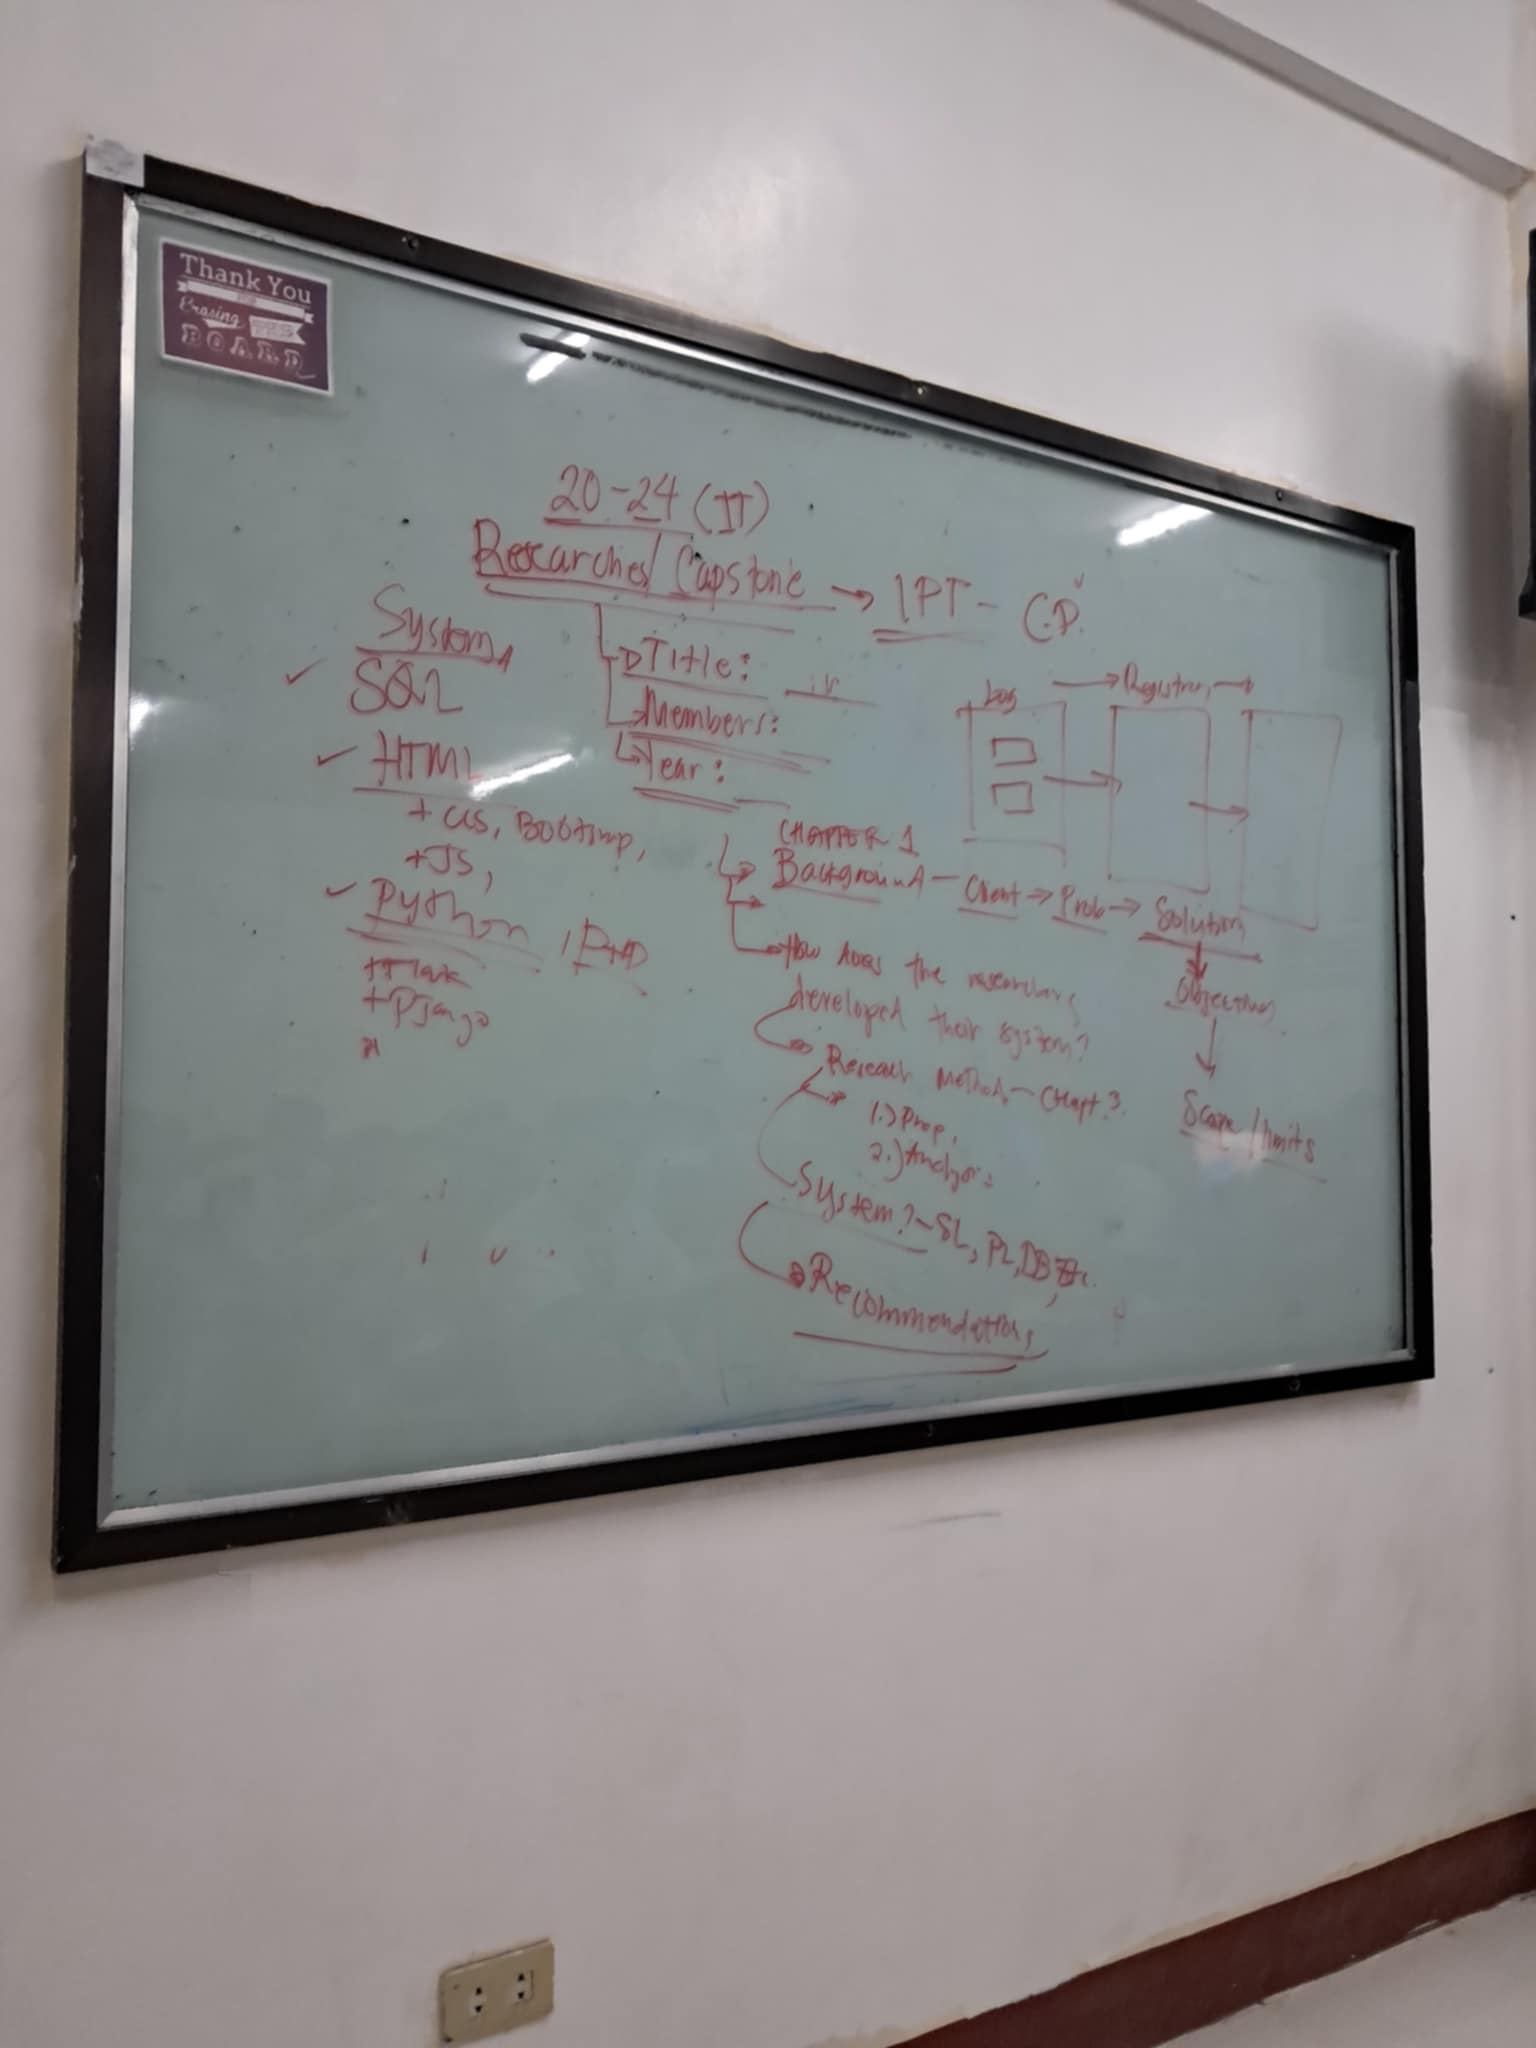 Thank You
FOR
Erasing THIS
BOARD
20-24 (IT)
Researches/Capstone → IPT - C.P.
→ Title:
→ Members:
→ Year:
System
✓ SQL
✓ HTML
+ CSS, Bootstrap,
+ JS,
✓ Python, PHP
+ Flask
+ Django
Log → Register →
CHAPTER 1
Background - Client → Prob → Solution
Objectives
Scope/limits
How does the researchers
developed their system?
Reseach Methods - Chapt. 3.
1.) Prop.
2.) Analysis
System? - SL, PL, DB, Etc.
Recommendations